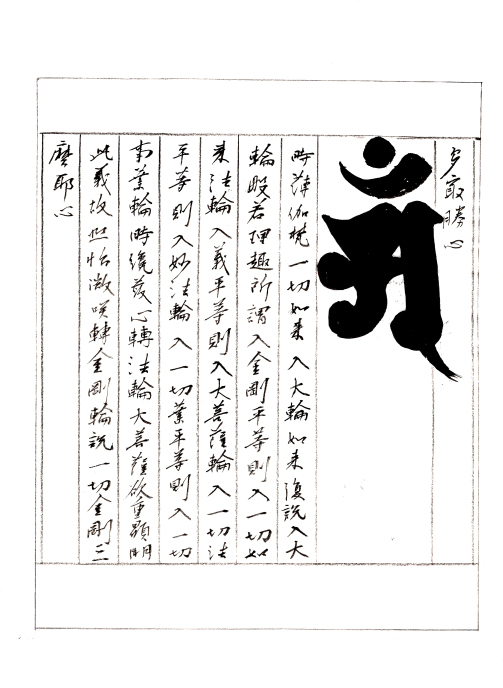 多最勝心
𑖀𑖽
時薄伽梵一切如来入大輪如来復説入大
輪般若理趣所謂入金剛平等則入一切如
来法輪入義平等則入大菩薩輪入一切法
平等則入妙法輪入一切業平等則入一切
事業輪時纔發心轉法輪大菩薩欲重顯明
此義故熙怡微咲轉金剛輪説一切金剛三
麼耶心